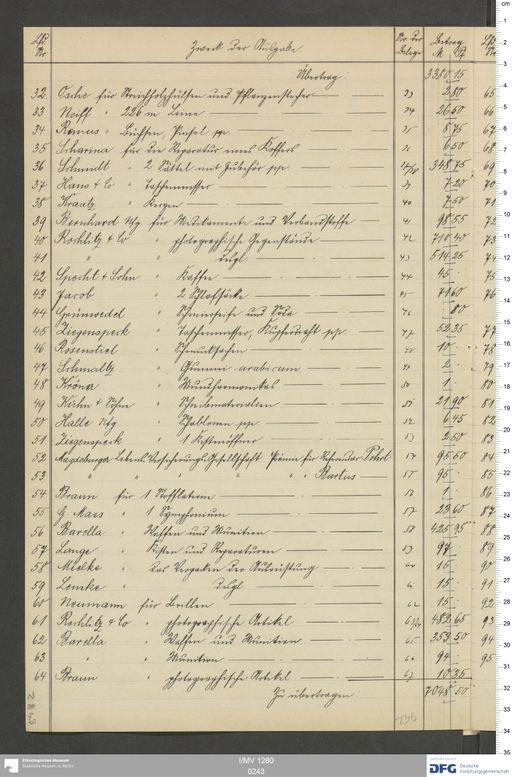 Lfd. Nr. Zweck der Ausgabe Nr. der Belege Betrag M. Pf. Lfd. Nr.
Übertrag: 3380 15
32 für Streichholzhülsen und 23 2 80 65
33 " 226 m Leine 24 26 50 66
34 " Büchsen, Pinsel pp. 25 8 75 67
35 für die Reparatur eines Koffers 26 6 50 68
36 Schmidt " 2 Sättel mit Zubehör pp. 348 75 69
37 & Co " Taschenmesser 39 7 20 70
38 Kraatz " Kerzen 40 7 50 71
39 Bernhard für Medikamente und Verbandstoffe 41 98 55 72
40 Rochlitz & Co " photographische Gegenstände 42 710 40 73
41 " " desgl. 43 514 25 74
42 Specht & Sohn " Kaffee 44 45 75
43 Jacob " 2 Schlafsäcke 45 71 60 76
44 " Schmierseife und Soda 46 80
45 Ziegenspeck " Taschenmesser, Kupferdraht pp. 47 52 35 77
46 Rosenstiel " 48 10 78
47 Schmaltz " Gummi arabicum 49 2 79
48 Kröna " Mundharmonikas 50 1 80
49 Kühn & Sohn " Schreibmaterialien 51 21 90 81
50 Halle " Schablonen pp. 52 6 45 82
51 Ziegenspeck " 1 Kistenöffner 53 2 50 83
52 Magdeburger Lebens-Versicherungs-Gesellschaft Prämie für 54 95 50 84
53 " " " " " Bartus 55 95 85
54 Braun für 1 Stofflaterne 56 1 86
55 G. Maes " 1 Symphonium 57 22 60 87
56 Barella " Waffen und Munition 58 425 95 88
57 Lange " Kisten und Reparaturen 59 97 89
58 Mielke " das Verpacken der Ausrüstung 60 15 90
59 Lemke " desgl. 61 15 91
60 Neumann für Brillen 62 15 92
61 Rochlitz & Co " photographische Artikel 482 65 93
62 Barella " Waffen und Munition 65 353 50 94
63 " " Munition 66 94 95
64 Braun " photographische Artikel 67 10 35
Zu übertragen: 7048 50
236
Ethnologisches Museum
Staatliche Museen zu Berlin
I/MV 1280
0243
gefördert durch
DFG Deutsche
Forschungsgemeinschaft